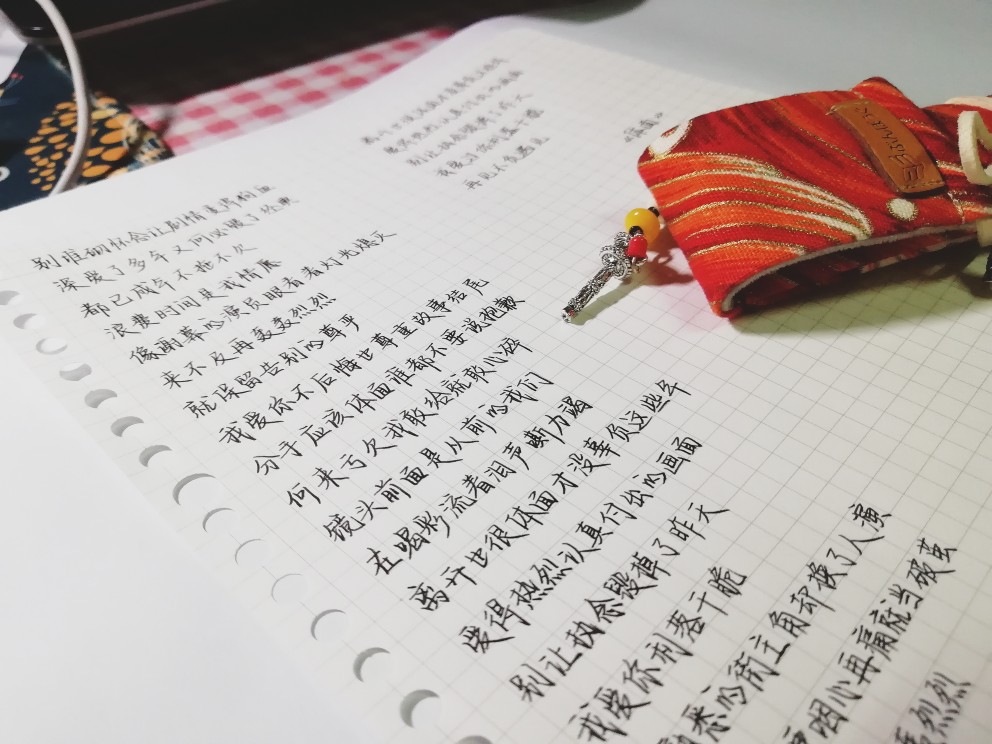 别堆砌怀念让剧情变得狗血
深爱了多年又何必毁了经典
都已成年不拖不欠
浪费时间是我情愿
像谢幕的演员眼看着灯光熄灭
来不及再轰轰烈烈
就保留告别的尊严
我爱你不后悔也尊重故事结尾
分手应该体面谁都不要说抱歉
何来亏欠我敢给就敢心碎
镜头前面是从前的我们
在喝彩流着泪声嘶力竭
离开也很体面才没辜负这些年
爱得热烈认真付出的画面
别让执念毁掉了昨天
我爱你利落干脆
悉的街主角却换了人演
咽心再痛就当破茧
烈烈
别让执念毁掉了昨天
再见不负遇见